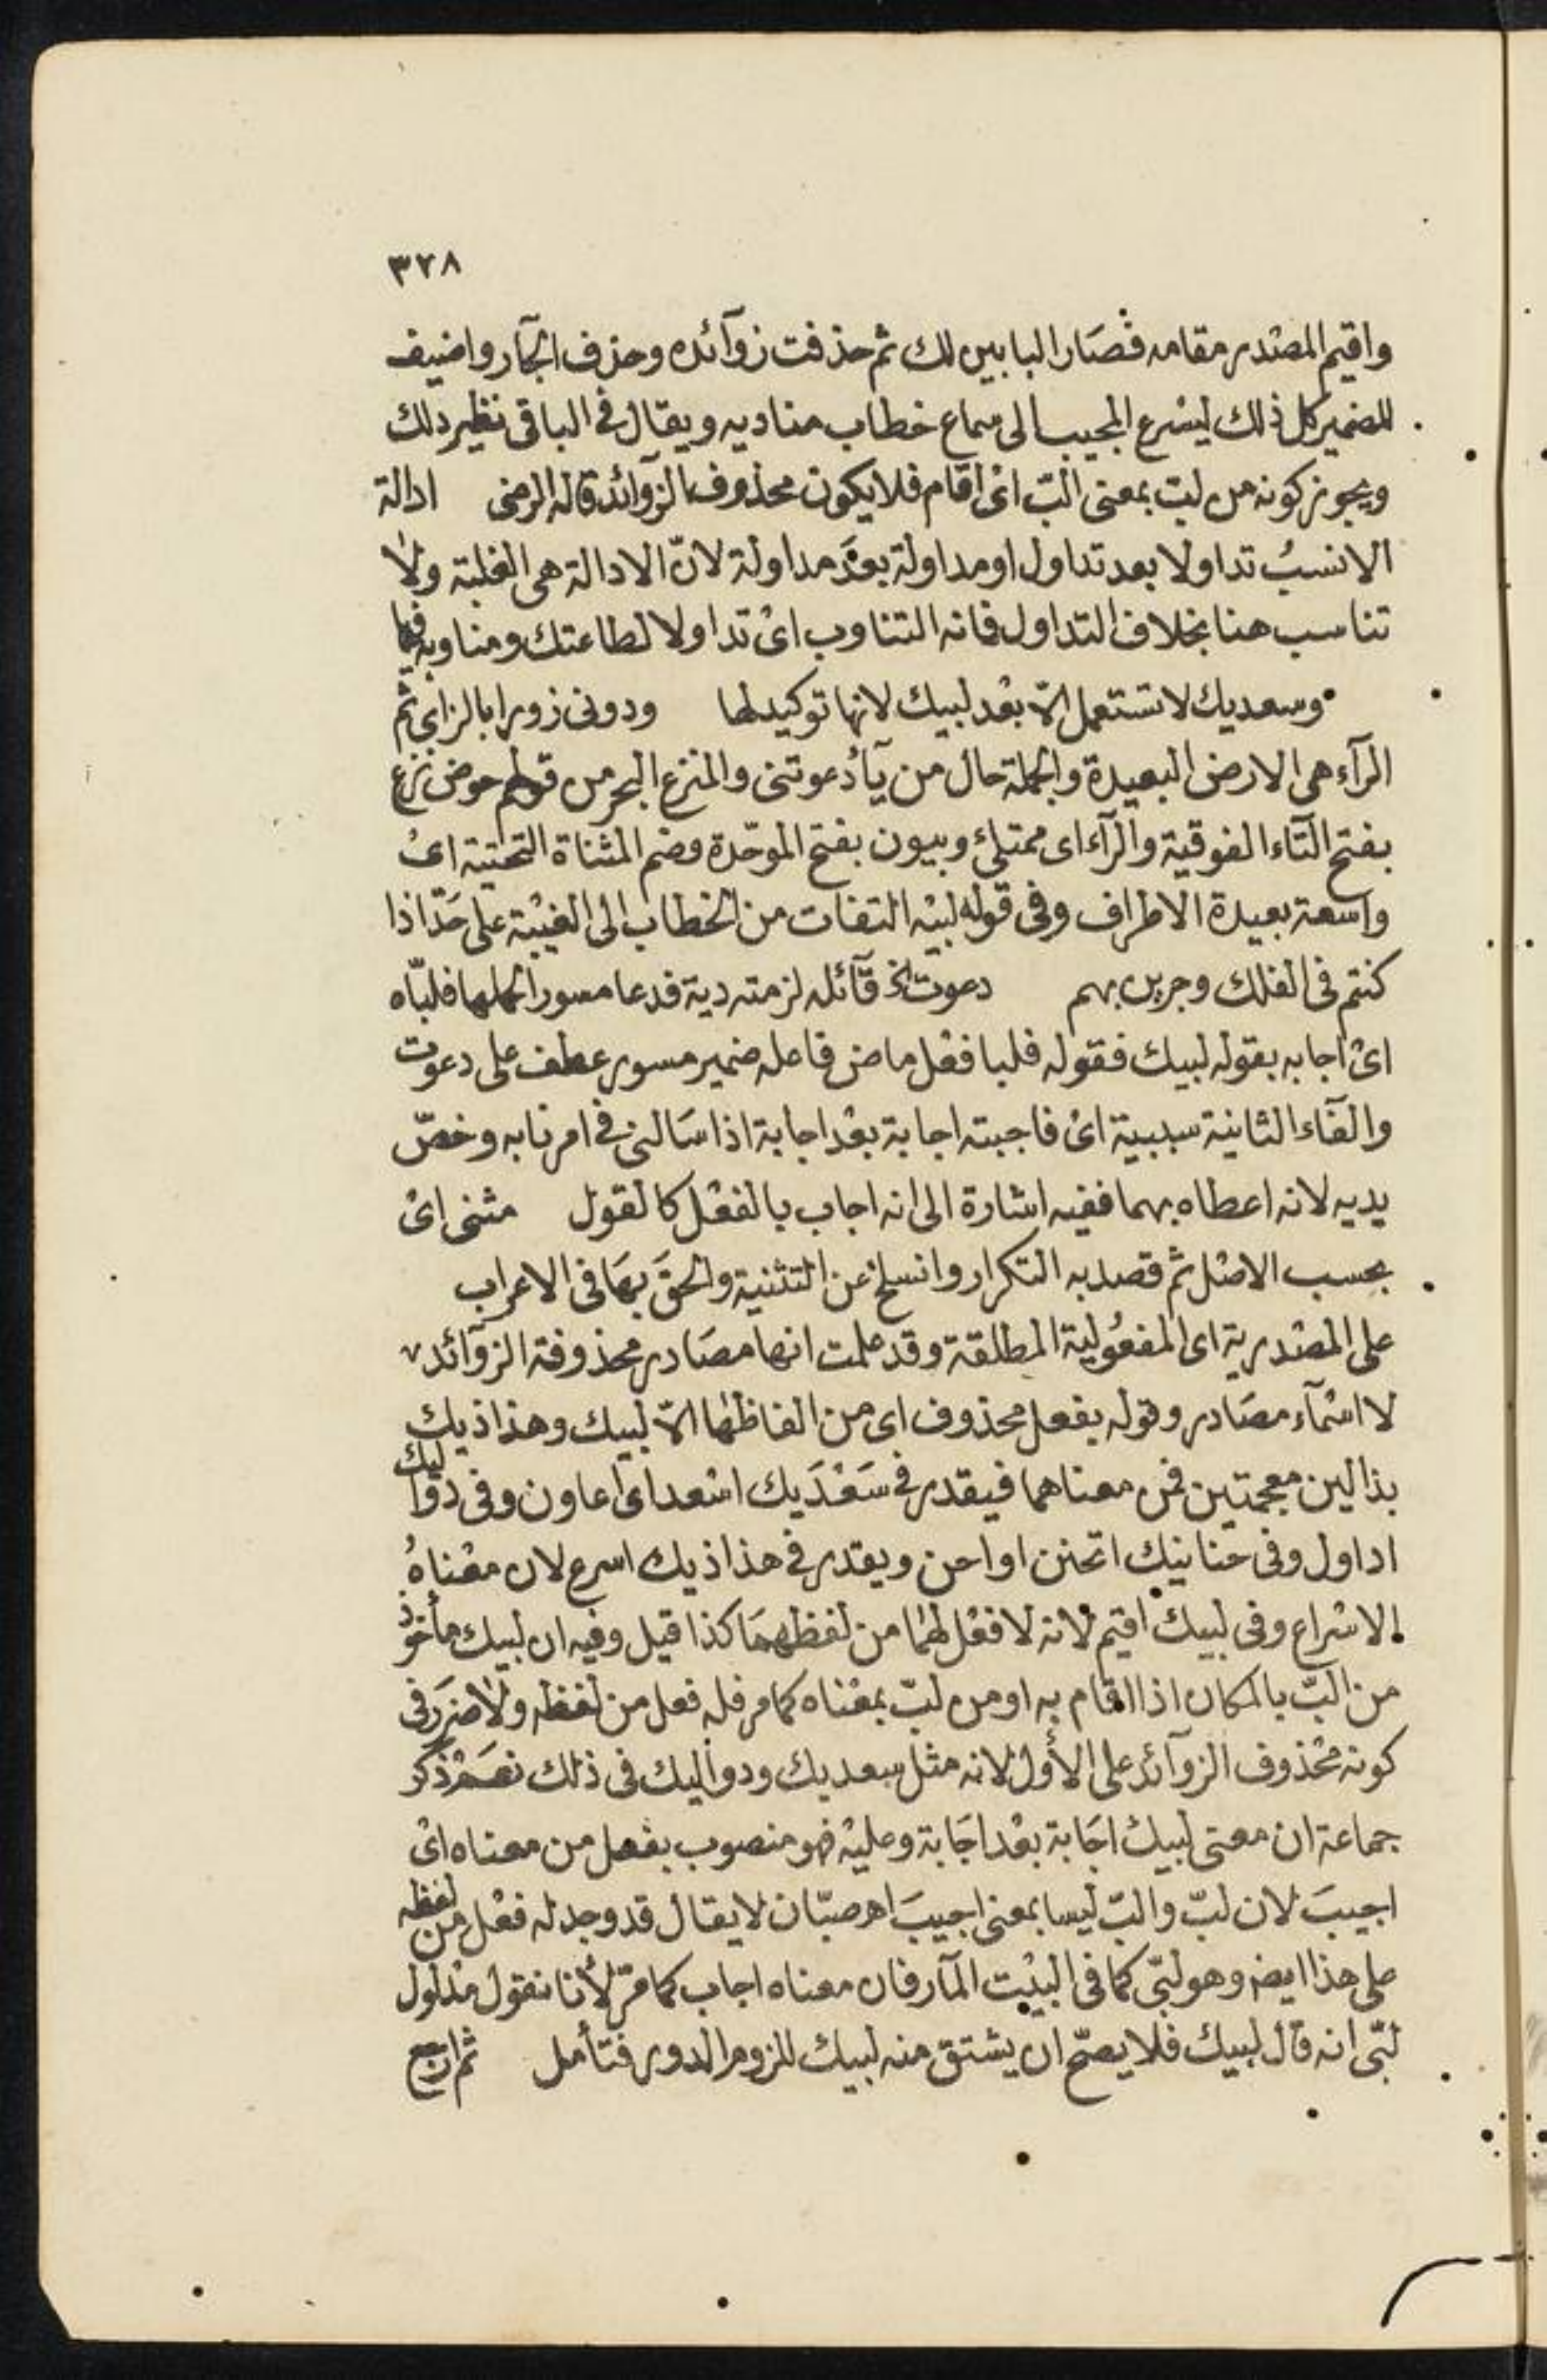 ٣٢٨
واقيم المصدر مقامه فصار البابين لك ثم حذفت زوآئده وحذف الجآر واضيف
للضمير كل ذلك ليسرع المجيب الى سماع خطاب مناديه ويقال فى الباقى نظير ذلك
ويجوز كونه من لبّ بمعنى البّ اى اقام فلا يكون محذوف الزوآئد قاله الرضى ادالة
الانسبُ تداولا بعد تداول او مداولة بعدَ مداولة لانّ الادالة هى الغلبة ولا
تناسب هنا بخلاف التداول فانه التناوب اى تداولا لطاعتك ومناوبه فيها
وسعديك لا تستعمل الّا بعد لبيك لانها توكيد لها ودونى زورا بالزاى ثم
الرآء هى الارض البعيدة والجملة حال من يآ دعوتنى والمنزع البحر من قولهم حوض نزع
بفتح التآء الفوقية والرآء اى ممتلئ وبيون بفتح الموحّدة وضم المثناة التحتية اى
واسعة بعيدة الاطراف وفى قوله لبيه التفات من الخطاب الى الغيبة على حَدّ اذا
كنتم فى الفلك وجرين بهم دعوت الخ قآئله لزمته دية فدعا مسورا لحملها فلبّاه
اى اجابه بقوله لبيك فقوله فلبا فعل ماض فاعله ضمير مسور عطف على دعوت
والفآء الثانية سببية اى فاجبته اجابة بعد اجابة اذا سَالنى فى امر نابه وخصّ
يديه لانه اعطاه بهما ففيه اشارة الى انه اجاب بالفعل كالقول مثنى اى
بحسب الاصل ثم قصد به التكرار وانسلخ عن التثنية والحقَ بهَا فى الاعراب
على المصدرية اى المفعُولية المطلقة وقد علمت انها مصَادر محذوفة الزوآئد
لا اسمآء مصَادر وقوله بفعل محذوف اى من الفاظها الّا لبيك وهذاذيك
بذالين معجمتين فمن معناهما فيقدر فى سَعْدَيك اسعد اى اعاون وفى دواليك
اداول وفى حنانيك اتحنن او احن ويقدر فى هذاذيك اسرع لان معْناهُ
الاسْراع وفى لبيك اقيم لانه لا فعْل لهُمَا من لفظهمَا كذا قيل وفيه ان لبيك مأخوذ
من البّ بالمكان اذا اقام به او من لبّ بمعْناه كما مر فله فعل من لفظه ولا ضرَر فى
كونه محْذوف الزوآئد على الأول لانه مثل سعديك ودواليك فى ذلك نعَمْ ذكر
جماعة ان معنى لبيك اجَابة بعْد اجَابة وعليْه فهو منصوب بفعل من معناه اى
اجيبَ لان لبّ والبّ ليسا بمعنى اجيبَ اهـ صبّان لا يقال قد وجد له فعْل من لفظه
على هذا ايضا وهو لبّى كما فى البيْت المآر فان معناه اجاب كما مرّ لأنا نقول مدْلول
لبّى انه قال لبيك فلا يصحّ ان يشتق منه لبيك للزوم الدور فتأمل ثم ارجع